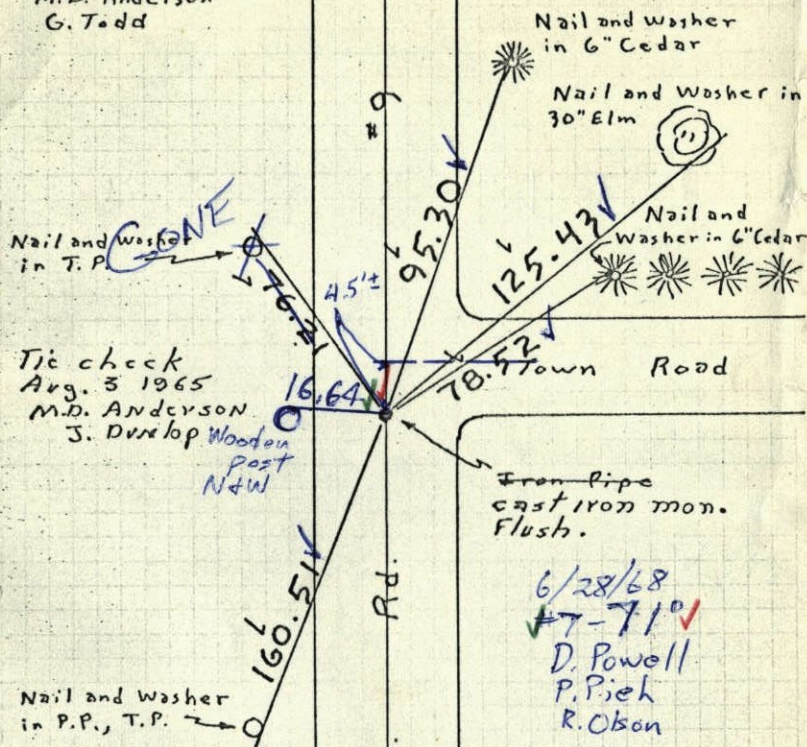 G. Todd
Nail and Washer
in 6" Cedar
#9
Nail and Washer in
30" Elm
95.30
125.43
Nail and
Washer in 6" Cedar
GONE
Nail and Washer
in T.P.
76.21
4.5'±
78.52
Town Road
Tie check
Aug. 3 1965
M.D. Anderson
J. Dunlop
16.64
Wooden
post
N&W
Iron Pipe
cast iron mon.
Flush.
Rd.
160.51
6/28/68
#7-71°
D. Powell
P. Pieh
R. Olson
Nail and Washer
in P.P., T.P.